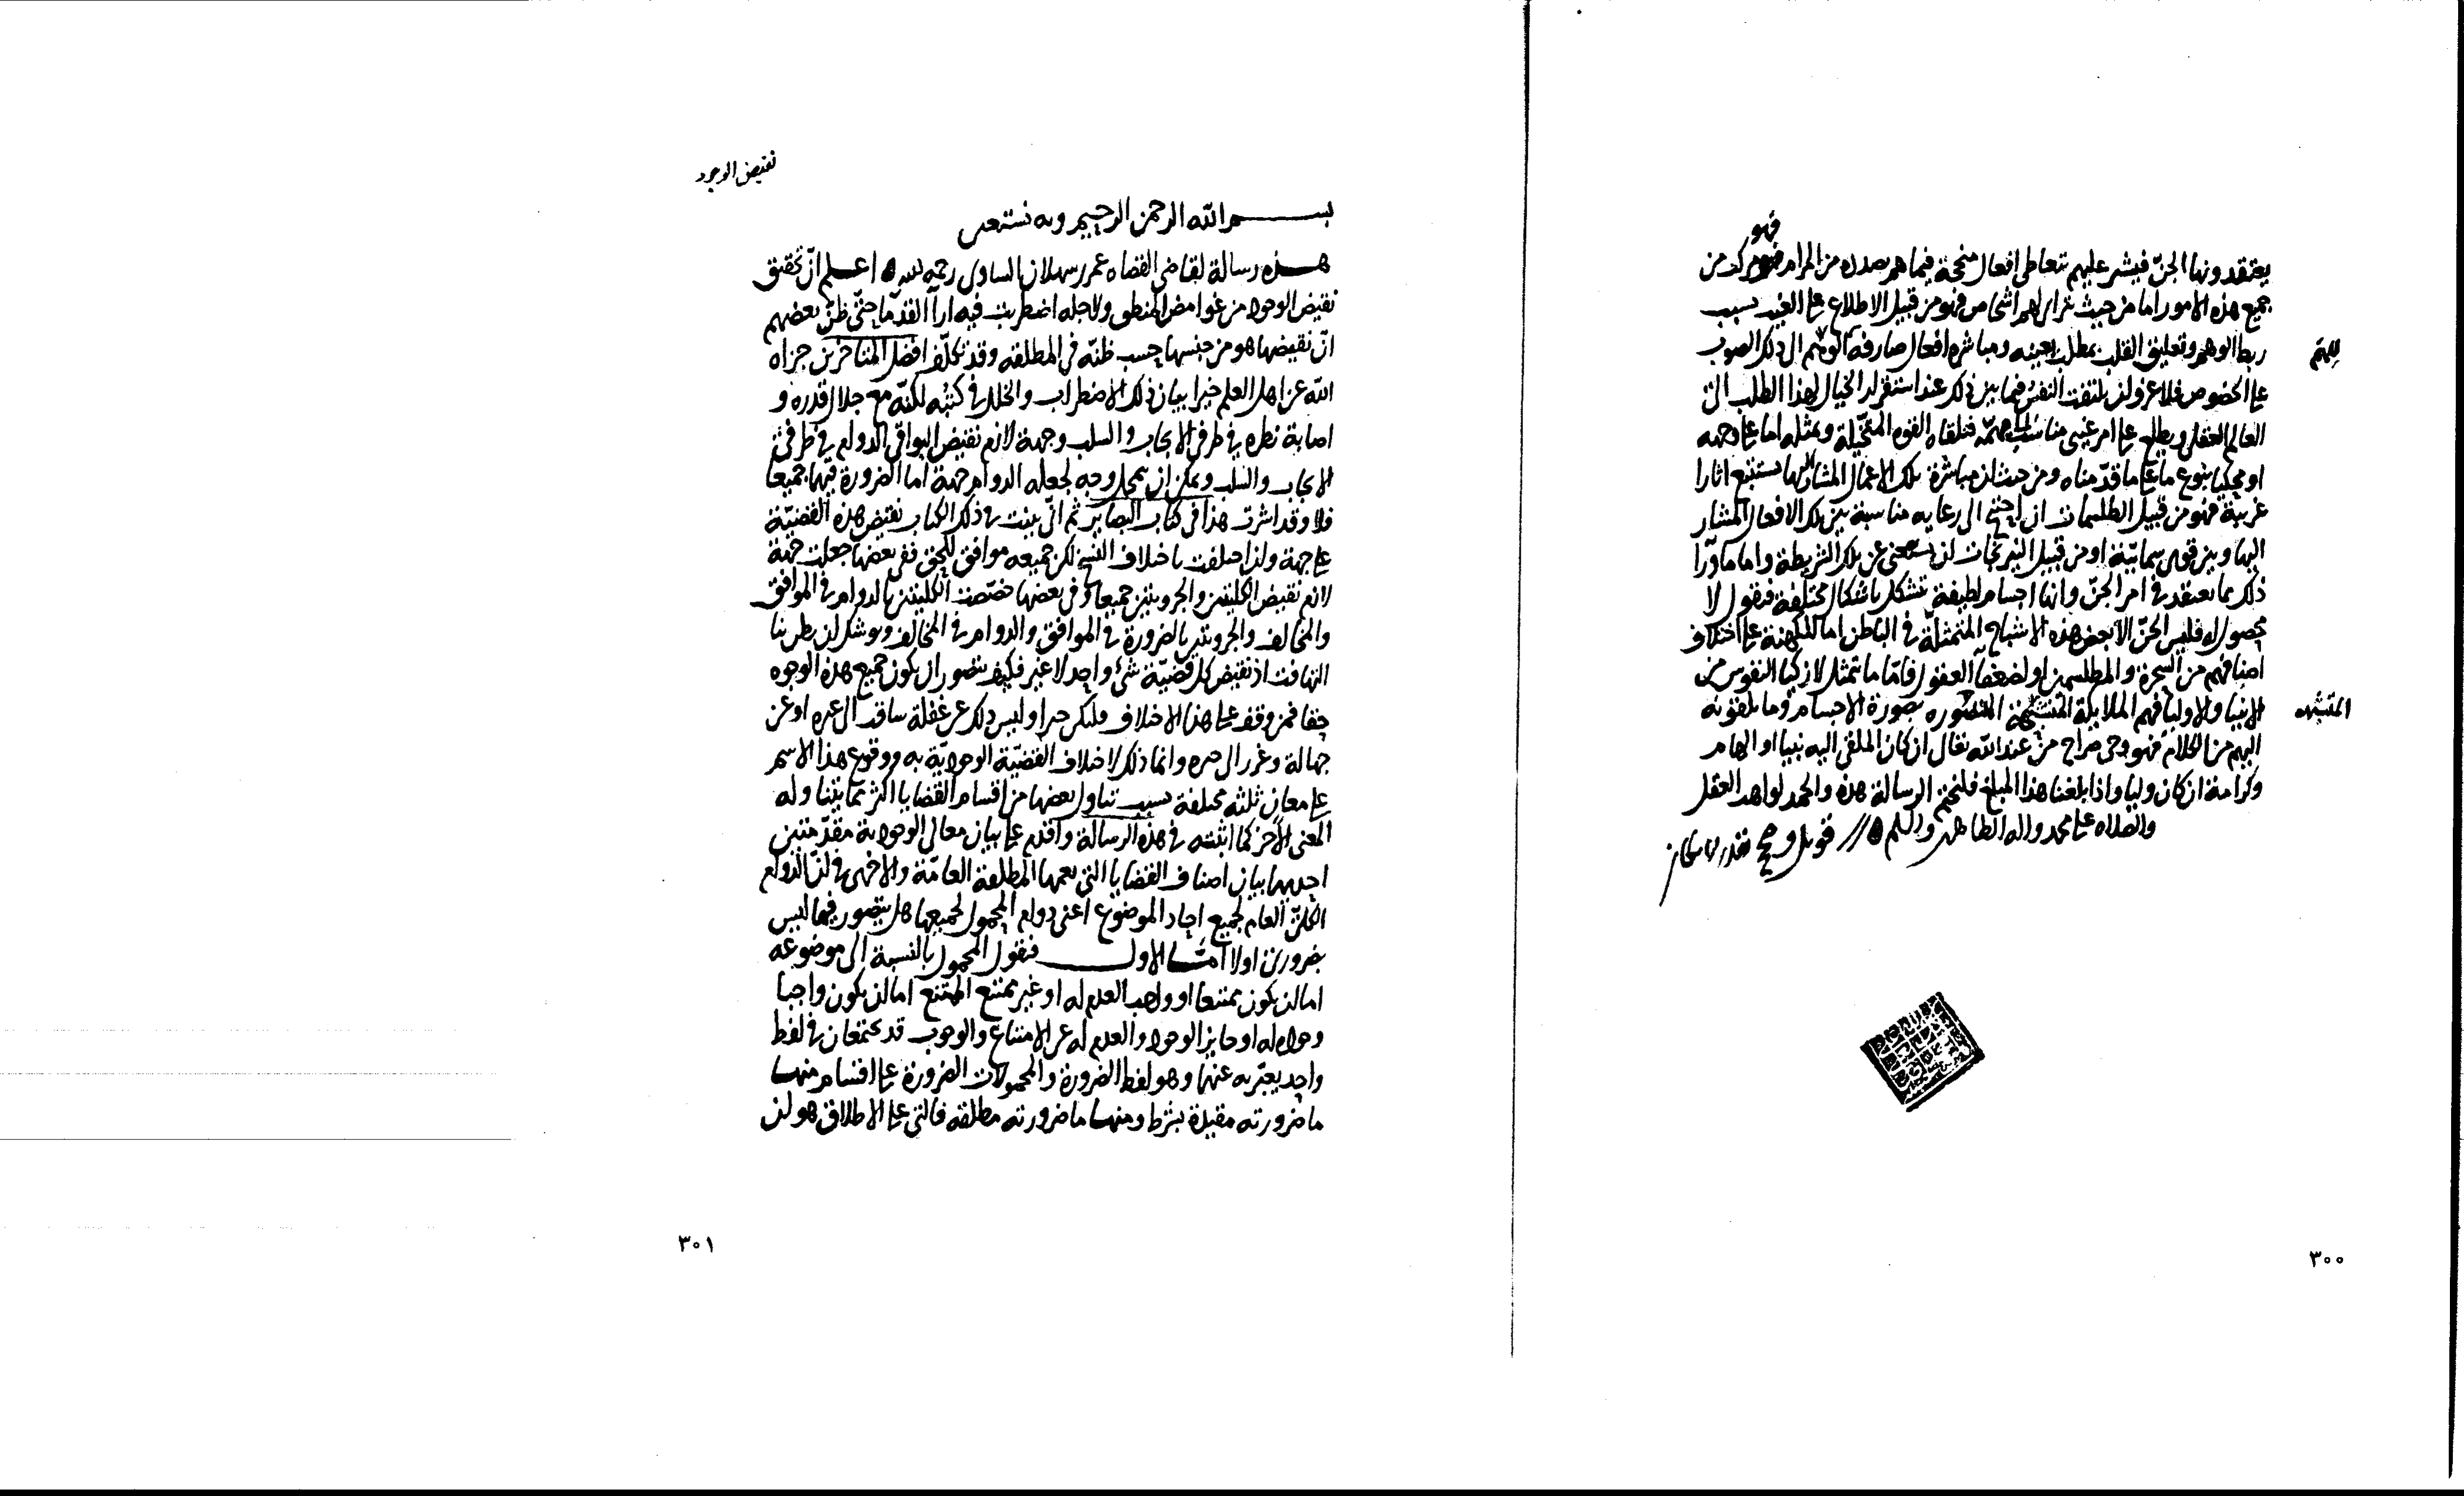 فهو
يعتقدونها الجنّ فيشير عليهم بتعاطي افعال منجحة فيما هم بصدده من المرام مركب من
جميع هذه الامور اما من حيث تراى لهم اشخاص فهو من قبيل الاطلاع على الغيب بسبب
ربط الوهم وتعليق القلب بمطلب بعينه ومباشرة افعال صارفة الوهم الى ذلك الصوب
للهمّ
على الخصوص فلا غرو لن يلتفت النفس فيما بين ذلك عند استغراق الخيال لهذا الطلب الى
العالم العقلى ويطلع على امر غيبى مناسب لمهمّه فتلقاه القوة المتخيّلة وتمثله اما على وجهه
او محكيا بنوع ما على ما قدّمناه ومن حيث لن مباشرة تلك الاعمال المشار اليها تستتبع اثارا
غريبة فهو من قبيل الطلسمات ان احتج الى رعاية مناسبة بين تلك الافعال المشار
اليها وبين قوى سمائيّة او من قبيل النيرنجات لن استغنى عن تلك الشريطة واما ما ورا
ذلك مما يعتقد فى امر الجنّ وانها اجسام لطيفة تتشكل باشكال مختلفة فنقول لا
محصول له فليس الجنّ الا بعض هذه الاشباح المتمثلة فى الباطن اما للكهنة على اختلاف
اصنافهم من السحرة والمطلسمين او لضعفآ العقول فامّا ما يتمثل لازكيا النفوس من
الانبيا والاوليا فهم الملايكة المتشبهة المتصوره بصورة الاجسام وما يلقونه
المتشبهه
اليهم من الكلام فهو وحى صراح من عند الله تعالى ان كان الملقى اليه نبيا او الهام
وكرامة ان كان وليا واذا بلغنا هذا المبلغ فلنختم الرسالة هذه والحمد لواهب العقل
والصلاه على محمد واله الطاهرين والسلم ه // قوبل وصحح بقدر الامكان
٣٠٠
نقيض الوجود
بسم الله الرحمن الرحيم وبه نستعين
هذه رسالة لقاضى القضاه عمر بن سهلان الساوى رحمه الله ه اعلم انّ تحقيق
نقيض الوجودى من غوامض المنطق ولاجله اضطربت فيه ارآ القدمآ حتّى ظنّ بعضهم
انّ نقيضها هو من جنسها حسب ظنّه فى المطلقه وقد تكلّف افضل المتاخرين جزاه
الله عن اهل العلم خيرا بيان ذلك الاضطراب والخلل فى كتبه لكنّه مع جلال قدره و
اصابة نظره فى طرفى الايجاب والسلب وجهة لازم نقيض البواقى الدوام فى طرفى
الايجاب والسلب ويمكن ان يتمحل وجه لجعله الدوام جهة اما الضرورة فيها جميعا
فلا وقد اشرت هذا فى كتاب البصاير ثم انّى بينت فى ذلك الكتاب نقيض هذه القضيّة
على جهة ولن اختلفت باختلاف النسخ لكن جميعه موافق للحق ففى بعضها جعلت جهة
لازم نقيض الكليتين والجزويتين جميعا وفى بعضها خصّصت الكليتين بالدوام فى الموافق
والمخالف والجزويتين بالضرورة فى الموافق والدوام فى المخالف ويوشك لن يظن بنا
التهافت اذ نقيض كل قضيّة شئ واحد لا غير فكيف يتصور ان يكون جميع هذه الوجوه
حقا فمن وقف على هذا الاختلاف وليس ذلك عن غفلة ساقت الى او عن
جهالة وانما ذلك لاختلاف القضيّة الوجوديّة به ووقوع هذا الاسم
على معان ثلثه مختلفة بسبب تناول بعضها من اقسام القضايا اكثر مما يتناوله
المعنى الاخر كما اثبته فى هذه الرسالة واقدم على بيان معانى الوجودية مقدّمتين
احديهما بيان اصناف القضايا التى يعمها المطلقة العامّة والاخرى فى لنّ الدوام
الكلىّ العام لجميع احاد الموضوع اعنى دوام المحمول لجميعها هل يتصور فيما ليس
بضرورى او لا امّا الاول فنقول المحمول بالنسبة الى موضوعه
اما لن يكون ممتنعا او واجب العدم له او غير ممتنع الممتنع اما لن يكون واجبا
وجوده له او جايز الوجود والعدم له عن الامتناع والوجوب قد يجتمعان فى لفظ
واحد يعبّر به عنهما وهو لفظ الضرورة والمحمولات الضرورة على اقسام منها
ما ضرورته مقيدة بشرط ومنها ما ضرورته مطلقه فالتى على الاطلاق هو لن
٣٠١